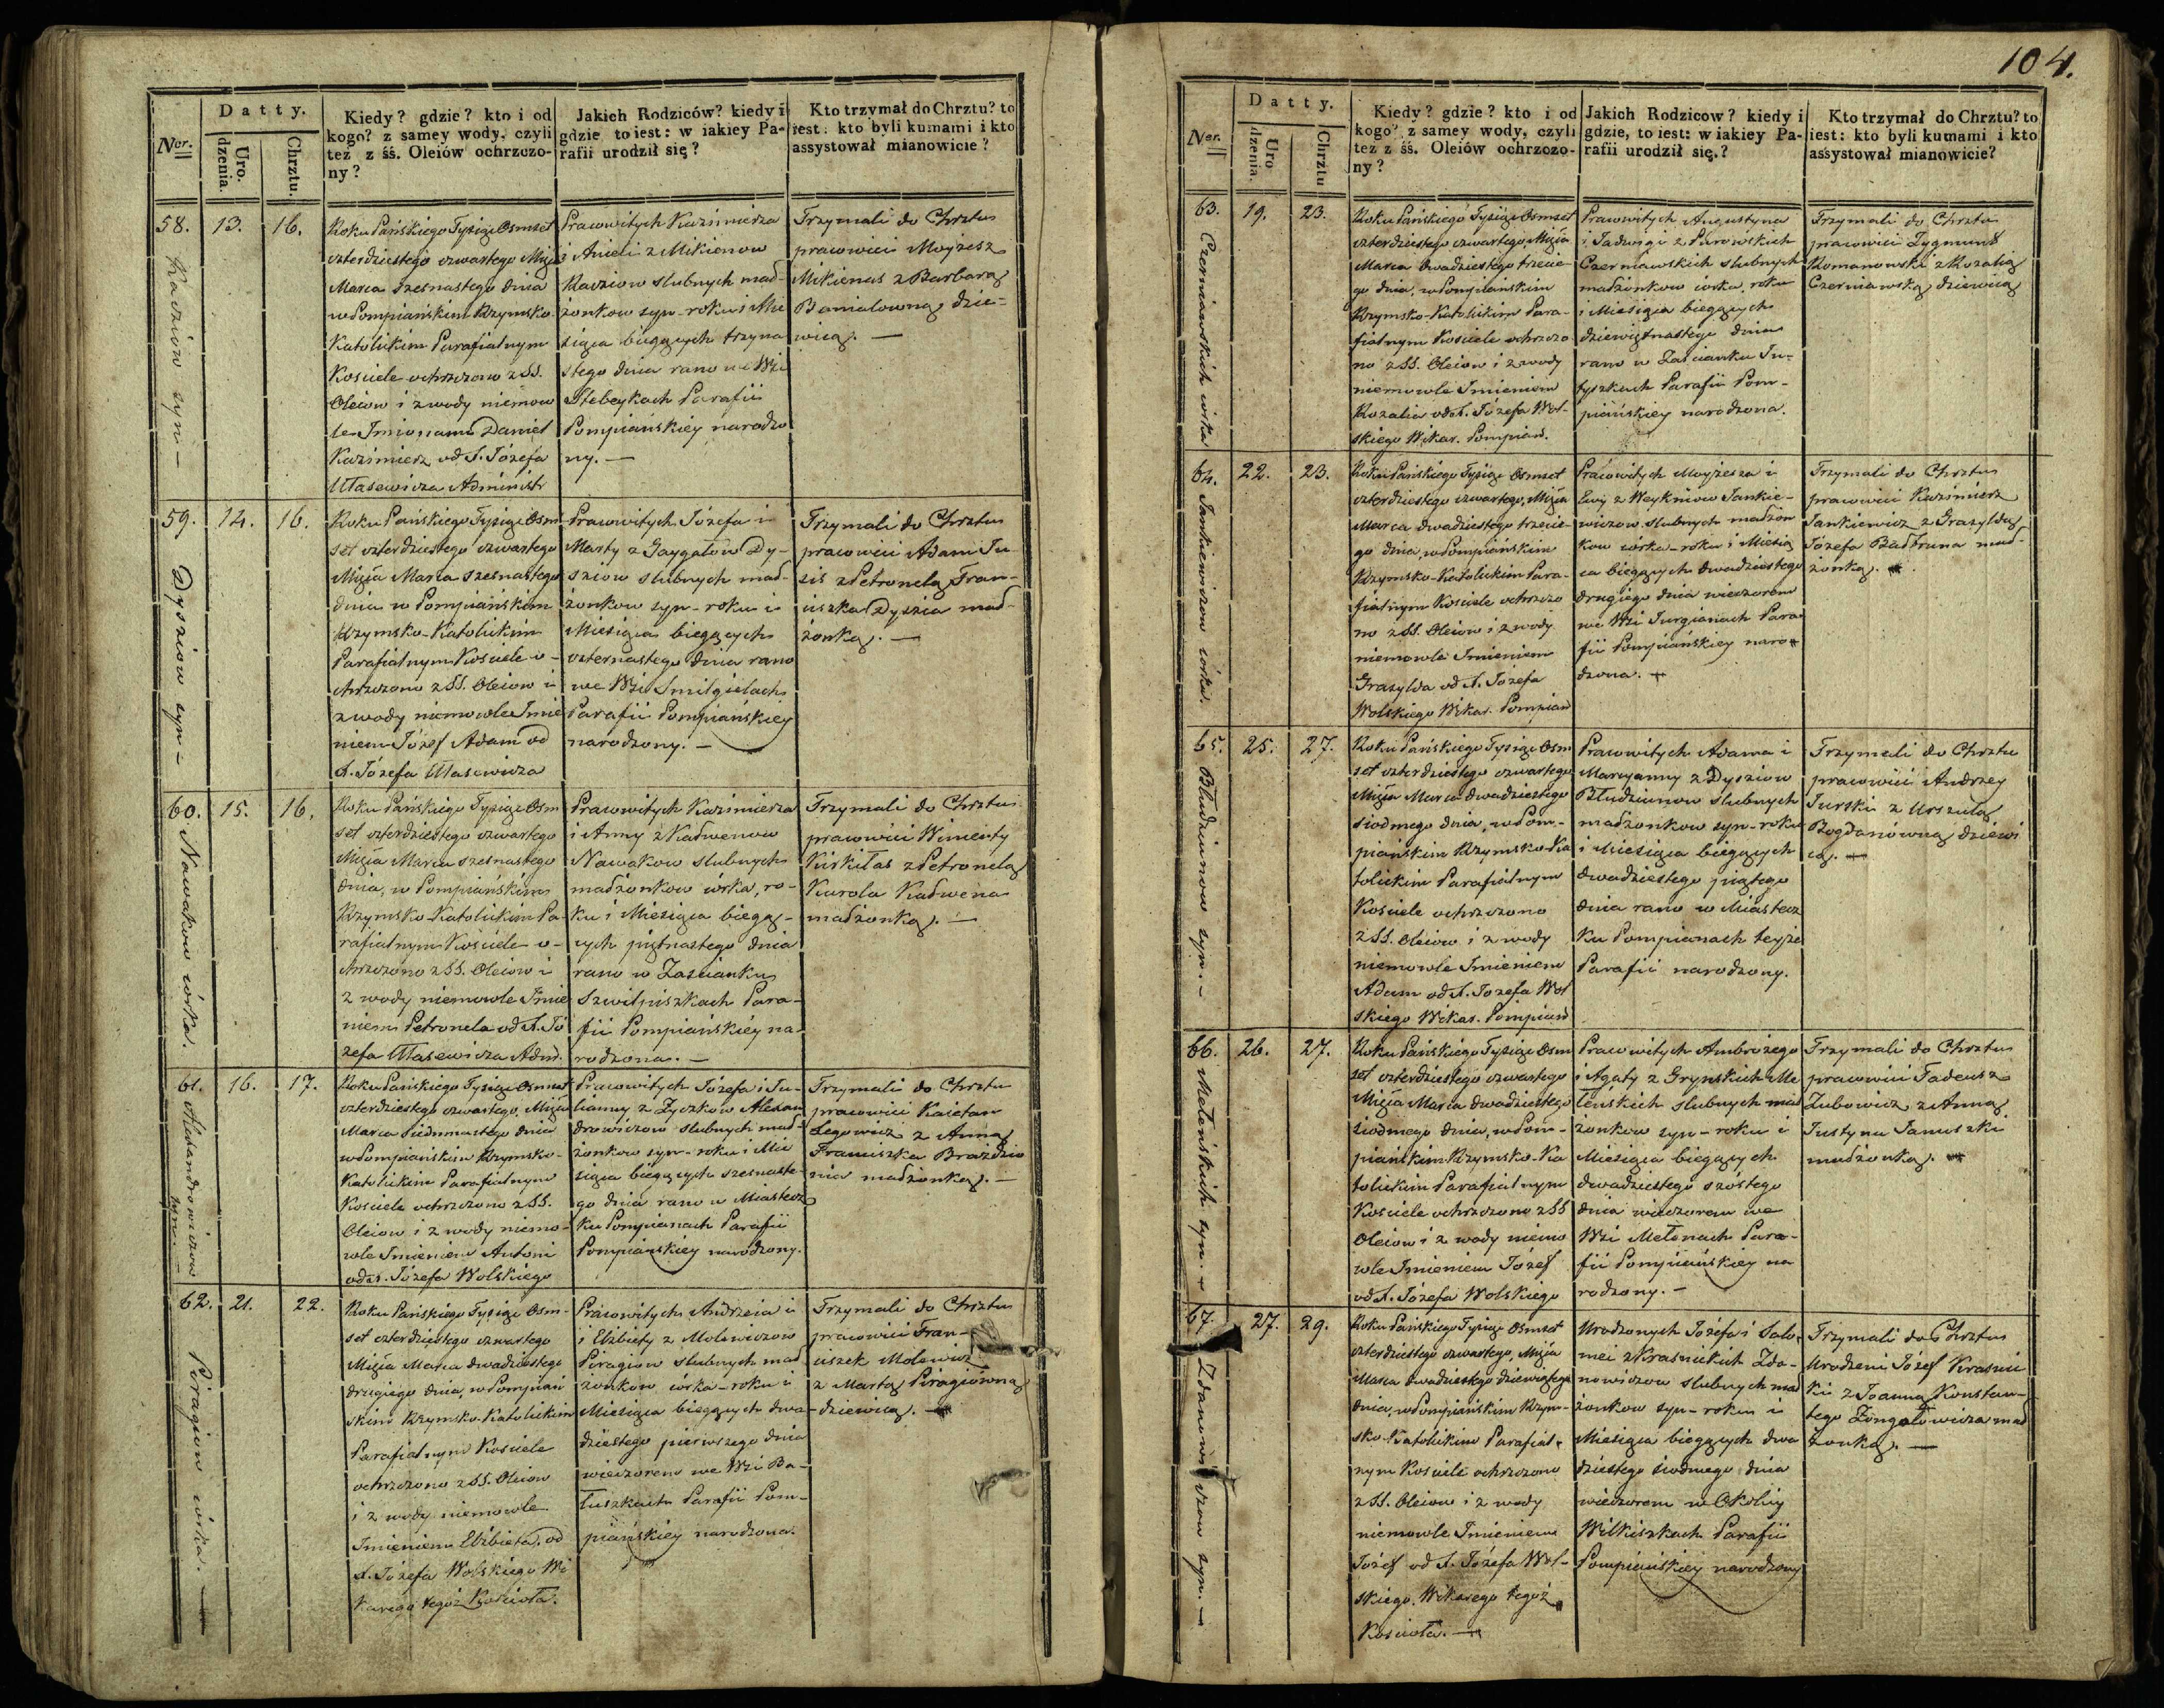 Datty.
Kiedy? gdzie? kto i od
kogo? z samey wody, czyli
też z śś. Oleiów ochrzczo-
ny?
Jakich Rodziców? kiedy i
gdzie to iest: w iakiey Pa-
rafii urodził się?
Kto trzymał do Chrztu? to
iest: kto byli kumami i kto
assystował mianowicie?
Ner.
Uro.
dzenia.
Chrztu.
58. 13. 16.
Kadziow syn –
Roku Pańskiego Tysiąc Osmset
czterdziestego czwartego Miąa
Marca szesnastego dnia
w Pompiańskim Rzymsko-
Katolickim Parafialnym
Kosciele ochrzczono z SS.
Oleiow i z wody niemow
le Imionami Daniel
Kazimierz od X. Józefa
Ułasewicza Administr
Pracowitych Kazimierza
i Anieli z Mikienow
Kadziow slubnych mał-
żonkow syn – roku i Mie
siąca bieżących trzyna
stego dnia rano we Wsi
Stebeykach Parafii
Pompiańskiey narodzo
ny. –
Trzymali do Chrztu
pracowici Moyżesz
Mikienas z Barbarą
Danielowną dzie-
wicą. –
59. 14. 16.
Dysziow syn –
Roku Pańskiego Tysiąc Osm
set czterdziestego czwartego
Miąa Marca szesnastego
dnia w Pompiańskim
Rzymsko-Katolickim
Parafialnym Kosciele o-
chrzczono z SS. Oleiow i
z wody niemowle Imie
niem Józef Adam od
X. Józefa Ułasewicza
Pracowitych Józefa i
Marty z Gaygałow Dy-
sziow slubnych mał-
żonkow syn – roku i
Miesiąca bieżących
czternastego dnia rano
we Wsi Smilgielach
Parafii Pompiańskiey
narodzony. –
Trzymali do Chrztu
pracowici Adam Ju
zis z Petronelą Fran-
ciszka Dyszia mał-
żonką. –
60. 15. 16.
Nawakow córka.
Roku Pańskiego Tysiąc Osm
set czterdziestego czwartego
Miąa Marca szesnastego
dnia, w Pompiańskim
Rzymsko-Katolickim Pa-
rafialnym Kosciele o-
chrzczono z SS. Oleiow i
z wody niemowle Imie
niem Petronela od X. Jó
zefa Ułasewicza Adm.
Pracowitych Kazimierza
i Anny z Kadwenow
Nawakow slubnych
małżonkow córka, ro-
ku i Miesiąca bieżą-
cych piętnastego dnia
rano w Zascianku
Szwilpiszkach Para-
fii Pompiańskiey na-
rodzona. –
Trzymali do Chrztu
pracowici Wincenty
Kirkiłas z Petronelą
Karola Kadwena
małżonką. –
61. 16. 17.
Alexandrowiczow
syn. –
Roku Pańskiego Tysiąc Osmset
czterdziestego czwartego, Miąa
Marca siedmnastego dnia
w Pompiańskim Rzymsko-
Katolickim Parafialnym
Kosciele ochrzczono z SS.
Oleiow i z wody niemo-
wle Imieniem Antoni
od X. Józefa Wolskiego
Pracowitych Józefa i Ju-
lianny z Zyczkow Alexan
drowiczow slubnych mał-
żonkow syn – roku i Mie
siąca bieżących szesnaste-
go dnia rano w Miastecz
ku Pompianach Parafii
Pompiańskiey narodzony.
Trzymali do Chrztu
pracowici Kaietan
Legowicz z Anną
Franciszka Brazdzio
nia małżonką. –
62. 21. 22.
Piragiow córka. –
Roku Pańskiego Tysiąc Osm-
set czterdziestego czwartego
Miąa Marca dwadziestego
drugiego dnia, w Pompiań
skim Rzymsko-Katolickim
Parafialnym Kosciele
ochrzczono z SS. Oleiow
i z wody niemowle
Imieniem Elżbieta, od
X. Józefa Wolskiego Wi
karego tegoż Kościoła.
Pracowitych Andrzeia i
i Elżbiety z Molewiczow
Piragiow slubnych mał
żonkow córka – roku i
Miesiąca bieżących dwa-
dziestego pierwszego dnia
wieczorem we Wsi Ba-
łuszkach Parafii Pom-
piańskiey narodzona.
Trzymali do Chrztu
pracowici Fran-
ciszek Molewicz
z Martą Piragiowną
dziewicą. –
104.
Datty.
Kiedy? gdzie? kto i od
kogo? z samey wody, czyli
też z śś. Oleiów ochrzczo-
ny?
Jakich Rodzicow? kiedy i
gdzie, to iest: w iakiey Pa-
rafii urodził się.?
Kto trzymał do Chrztu? to
iest: kto byli kumami i kto
assystował mianowicie?
Ner.
Uro
dzenia.
Chrztu
63. 19. 23.
Czerniawskich córka
Roku Pańskiego Tysiąc Osmset
czterdziestego czwartego, Miąa
Marca dwadziestego trzecie-
go dnia, w Pompiańskim
Rzymsko-Katolickim Para-
fialnym Kosciele ochrzczo
no z SS. Oleiow i z wody
niemowle Imieniem
Rozalia od X. Józefa Wol-
skiego Wikar. Pompian.
Pracowitych Augustyna
i Jadwigi z Purowskich
Czerniawskich slubnych
małżonkow córka, roku
i Miesiąca bieżących
dziewiętnastego dnia
rano w Zascianku Ju-
tyszkach Parafii Pom-
piańskiey narodzona.
Trzymali do Chrztu
pracowici Zygmunt
Romanowski z Rozalią
Czerniawską dziewicą
64. 22. 23.
Jankiewiczow córka.
Roku Pańskiego Tysiąc Osmset
czterdziestego czwartego, Miąa
Marca dwadziestego trzecie-
go dnia, w Pompiańskim
Rzymsko-Katolickim Para-
fialnym Kosciele ochrzczo
no z SS. Oleiow i z wody
niemowle Imieniem
Grasylda od X. Józefa
Wolskiego Wikar. Pompian
Pracowitych Moyżesza i
Ewy z Weykniow Jankie-
wiczow slubnych małżon
kow córka – roku i Miesią
ca bieżących dwadziestego
drugiego dnia wieczorem
we Wsi Jurgianach Para
fii Pompiańskiey naro-
dzona. –
Trzymali do Chrztu
pracowici Kazimierz
Jankiewicz z Grasyldą
Józefa Bałtruna mał-
żonką. –
65. 25. 27.
Błudziunow syn. –
Roku Pańskiego Tysiąc Osm
set czterdziestego czwartego
Miąa Marca dwadziestego
siodmego dnia, w Pom-
piańskim Rzymsko-Ka
tolickim Parafialnym
Kosciele ochrzczono
z SS. Oleiow i z wody
niemowle Imieniem
Adam od X. Jozefa Wol
skiego Wikar. Pompian
Pracowitych Adama i
Maryanny z Dysziow
Błudziunow slubnych
małżonkow syn – roku
i Miesiąca bieżących
dwadziestego piątego
dnia rano w Miastecz
ku Pompianach teyże
Parafii narodzony.
Trzymali do Chrztu
pracowici Andrzey
Jurski z Urszulą
Bogdanowną dziewi
cą. –
66. 26. 27.
Meleńskich syn. –
Roku Pańskiego Tysiąc Osm
set czterdziestego czwartego
Miąa Marca dwadziestego
siodmego dnia, w Pom-
piańskim Rzymsko-Ka
tolickim Parafialnym
Kosciele ochrzczono z SS
Oleiow i z wody niemo
wle Imieniem Józef
od X. Józefa Wolskiego
Pracowitych Ambrożego
i Agaty z Grynskich Me
leńskich slubnych mał
żonkow syn – roku i
Miesiąca bieżących
dwadziestego szóstego
dnia wieczorem we
Wsi Melenach Para-
fii Pompiańskiey na
rodzony. –
Trzymali do Chrztu
pracowici Tadeusz
Zubowicz z Anną
Justyna Januszki
małżonką. –
67. 27. 29.
Zdanowiczow syn. –
Roku Pańskiego Tysiąc Osmset
czterdziestego czwartego, Miąa
Marca dwadziestego dziewiątego
dnia, w Pompiańskim Rzym-
sko-Katolickim Parafial-
nym Kosciele ochrzczono
z SS. Oleiow i z wody
niemowle Imieniem
Jozef od X. Józefa Wol-
skiego Wikarego tegoż
Kosciola. –
Urodzonych Józefa i Salo-
mei z Krasnickich Zda-
nowiczow slubnych mał
żonkow syn – roku i
Miesiąca bieżących dwa
dziestego siodmego dnia
wieczorem w Okolicy
Wilkiszkach Parafii
Pompiańskiey narodzony
Trzymali do Chrztu
Urodzeni Józef Krasnic
ki z Joanną Konstan-
tego Zongołowicza mał
żonką. –